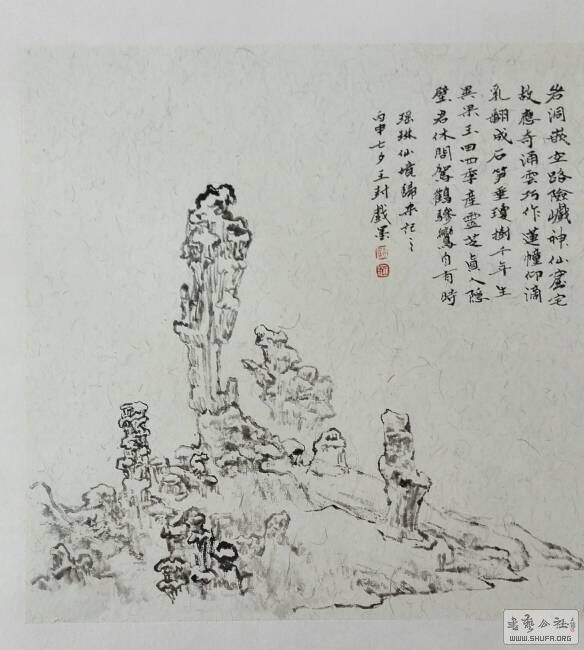 岩洞嵌空路險巇神仙窟宅
故應奇涌雲巧作蓮幢仰滴
乳翻成石笋垂瓊樹千年生
異果玉田四季產靈芝眞人隱
壁君休問駕鶴驂鸞自有時
琳仙境歸來記之
丙申七夕王封戲墨
书艺公社
WWW.SHUFA.ORG